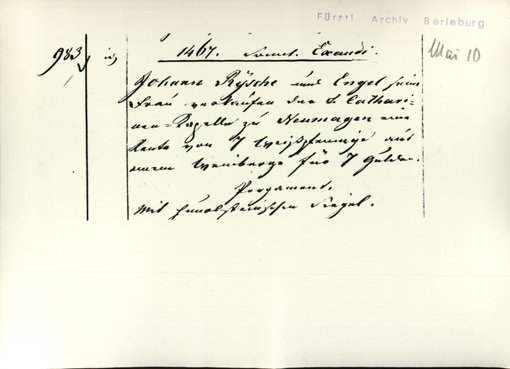 Fürstl. Archiv Berleburg
983
1467. Exaudi.
Mai 10
Johann Rÿsche und Engel seine
Frau verkaufen der S. Cathari-
nen-Kapelle zu Neumagen eine
Rente von 7 Weißpfennige aus
einem Weinberge für 7 Gulden.
Pergament.
Mit Hunolsteinischen Siegel.